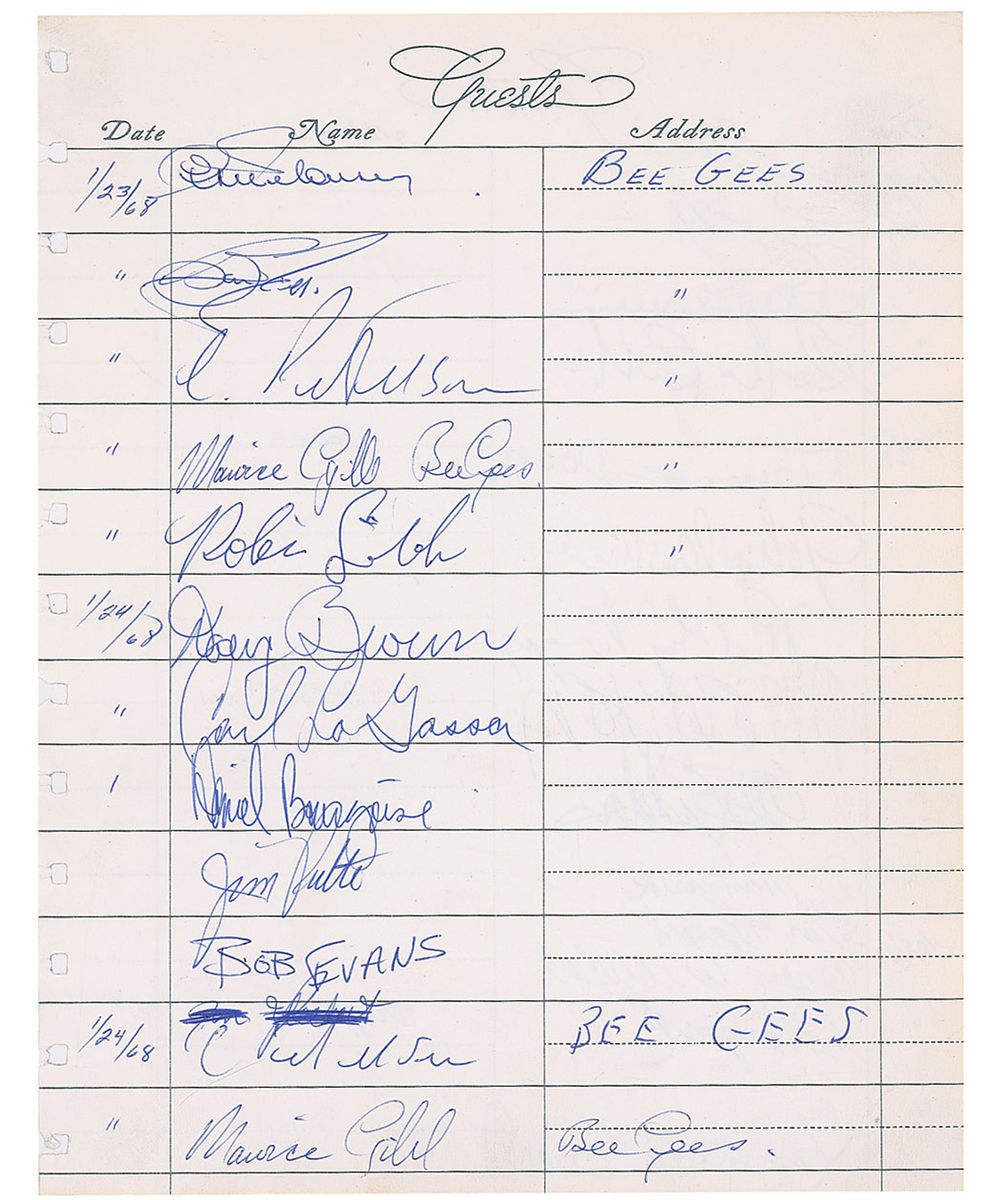 Guests
Date Name Address
1/23/68 BEE GEES
" "
" "
" Maurice Gibb BeeGees. "
" Robin Gibb "
1/24/68 Brown
" Carl La Gassa
' Daniel Bourgoise
Jim
BOB EVANS
1/24/68 BEE GEES
" Maurice Gibb BeeGees.